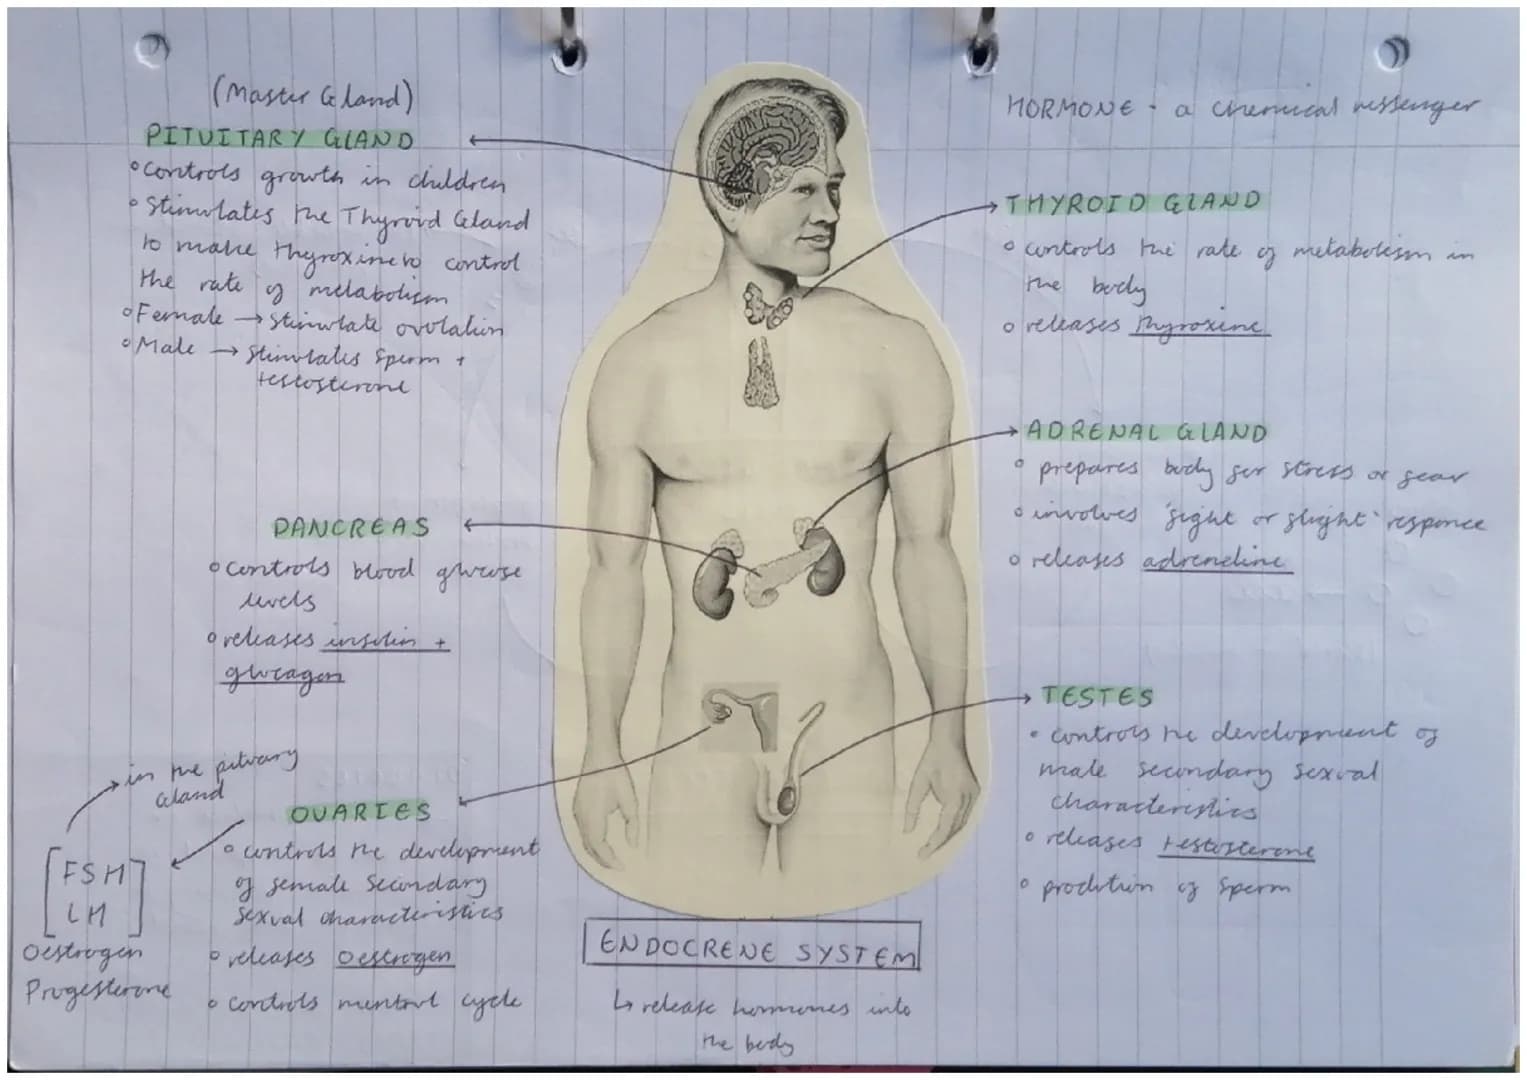 (Master Gland)
PITUITARY GLAND
◦ controls growth in children
◦ Stimulates the Thyroid Gland
to make thyroxine to control
the rate of metabolism
◦ Female → Stimulate ovulation
◦ Male → Stimulates Sperm +
testosterone
PANCREAS
◦ controls blood glucose
levels
◦ releases insulin +
glucagon
in the pituary
Gland
OVARIES
◦ controls the development
of female Secondary
sexual characteristics
◦ releases Oestrogen
◦ controls mentrul cycle
[FSH
LH]
Oestrogen
Progesterone
HORMONE - a chemical messenger
THYROID GLAND
◦ controls the rate of metabolism in
the body
◦ releases thyroxine
ADRENAL GLAND
◦ prepares body for stress or fear
◦ involves 'fight or flight' responce
◦ releases adreneline
TESTES
• controls the development of
male Secondary Sexual
characteristics
◦ releases testosterone
◦ prodution of Sperm
ENDOCRENE SYSTEM
↳ release hormones into
the body